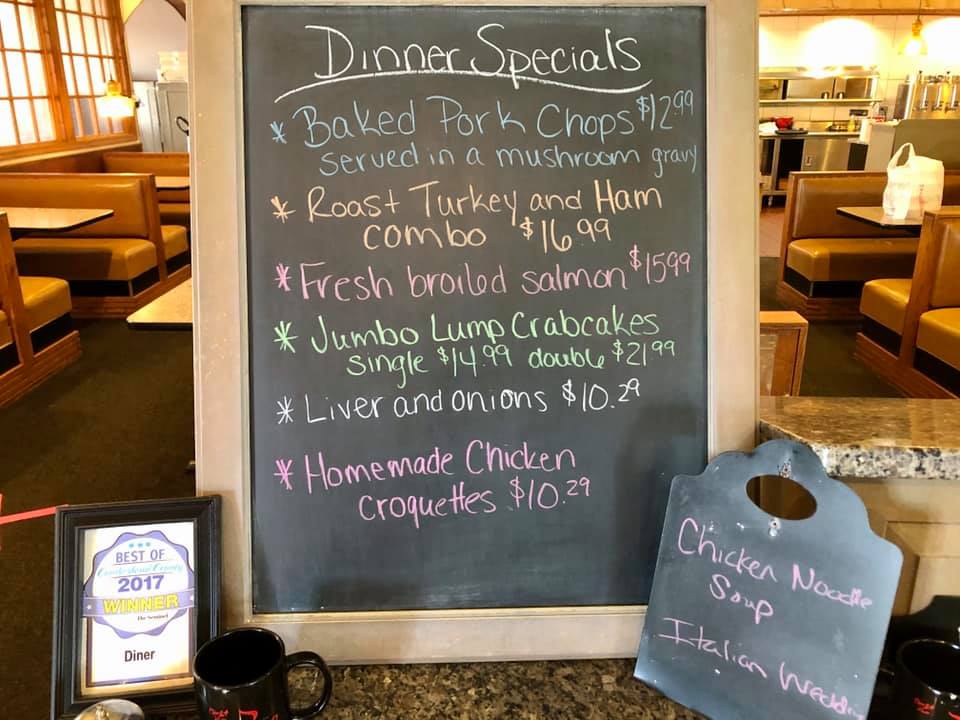 Dinner Specials
* Baked Pork Chops $12.99
served in a mushroom gravy
* Roast Turkey and Ham
combo $16.99
* Fresh broiled salmon $15.99
* Jumbo Lump Crabcakes
single $14.99 double $21.99
* Liver and onions $10.29
* Homemade Chicken
croquettes $10.29
BEST OF
Cumberland County
2017
WINNER
The Sentinel
Diner
Chicken Noodle
Soup
Italian